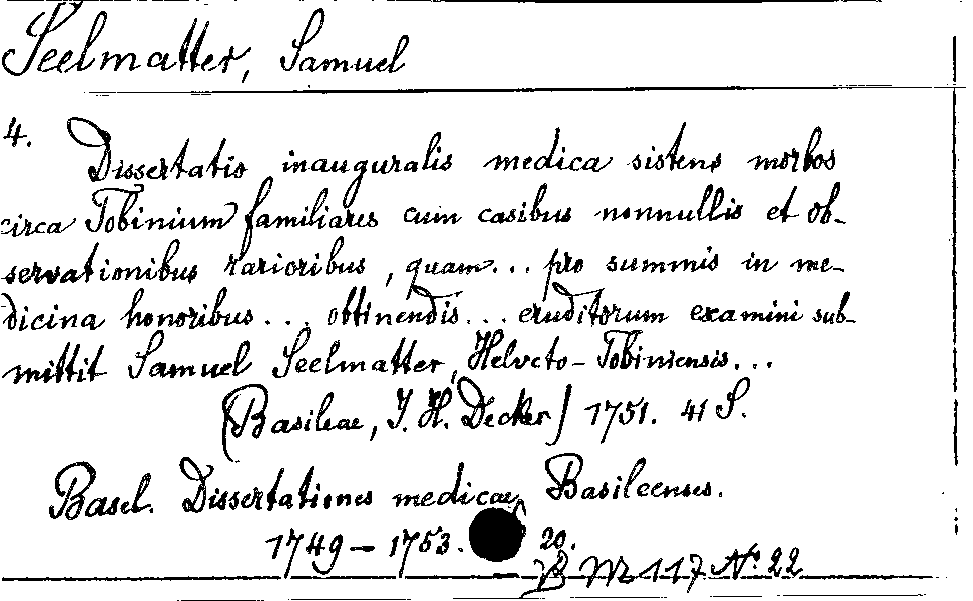 Seelmatter, Samuel
4. Dissertatio inauguralis medica sistens morbos
circa Tobinium familiares cum casibus nonnullis et ob-
servationibus rarioribus, quam... pro summis in me-
dicina honoribus... obtinendis... eruditorum examini sub-
mittit Samuel Seelmatter, Helveto-Tobiniensis...
(Basileae, J. H. Decker) 1751. 41 S.
Basel. Dissertationes medicae Basileenses.
1749-1753. 20.
117 No. 22